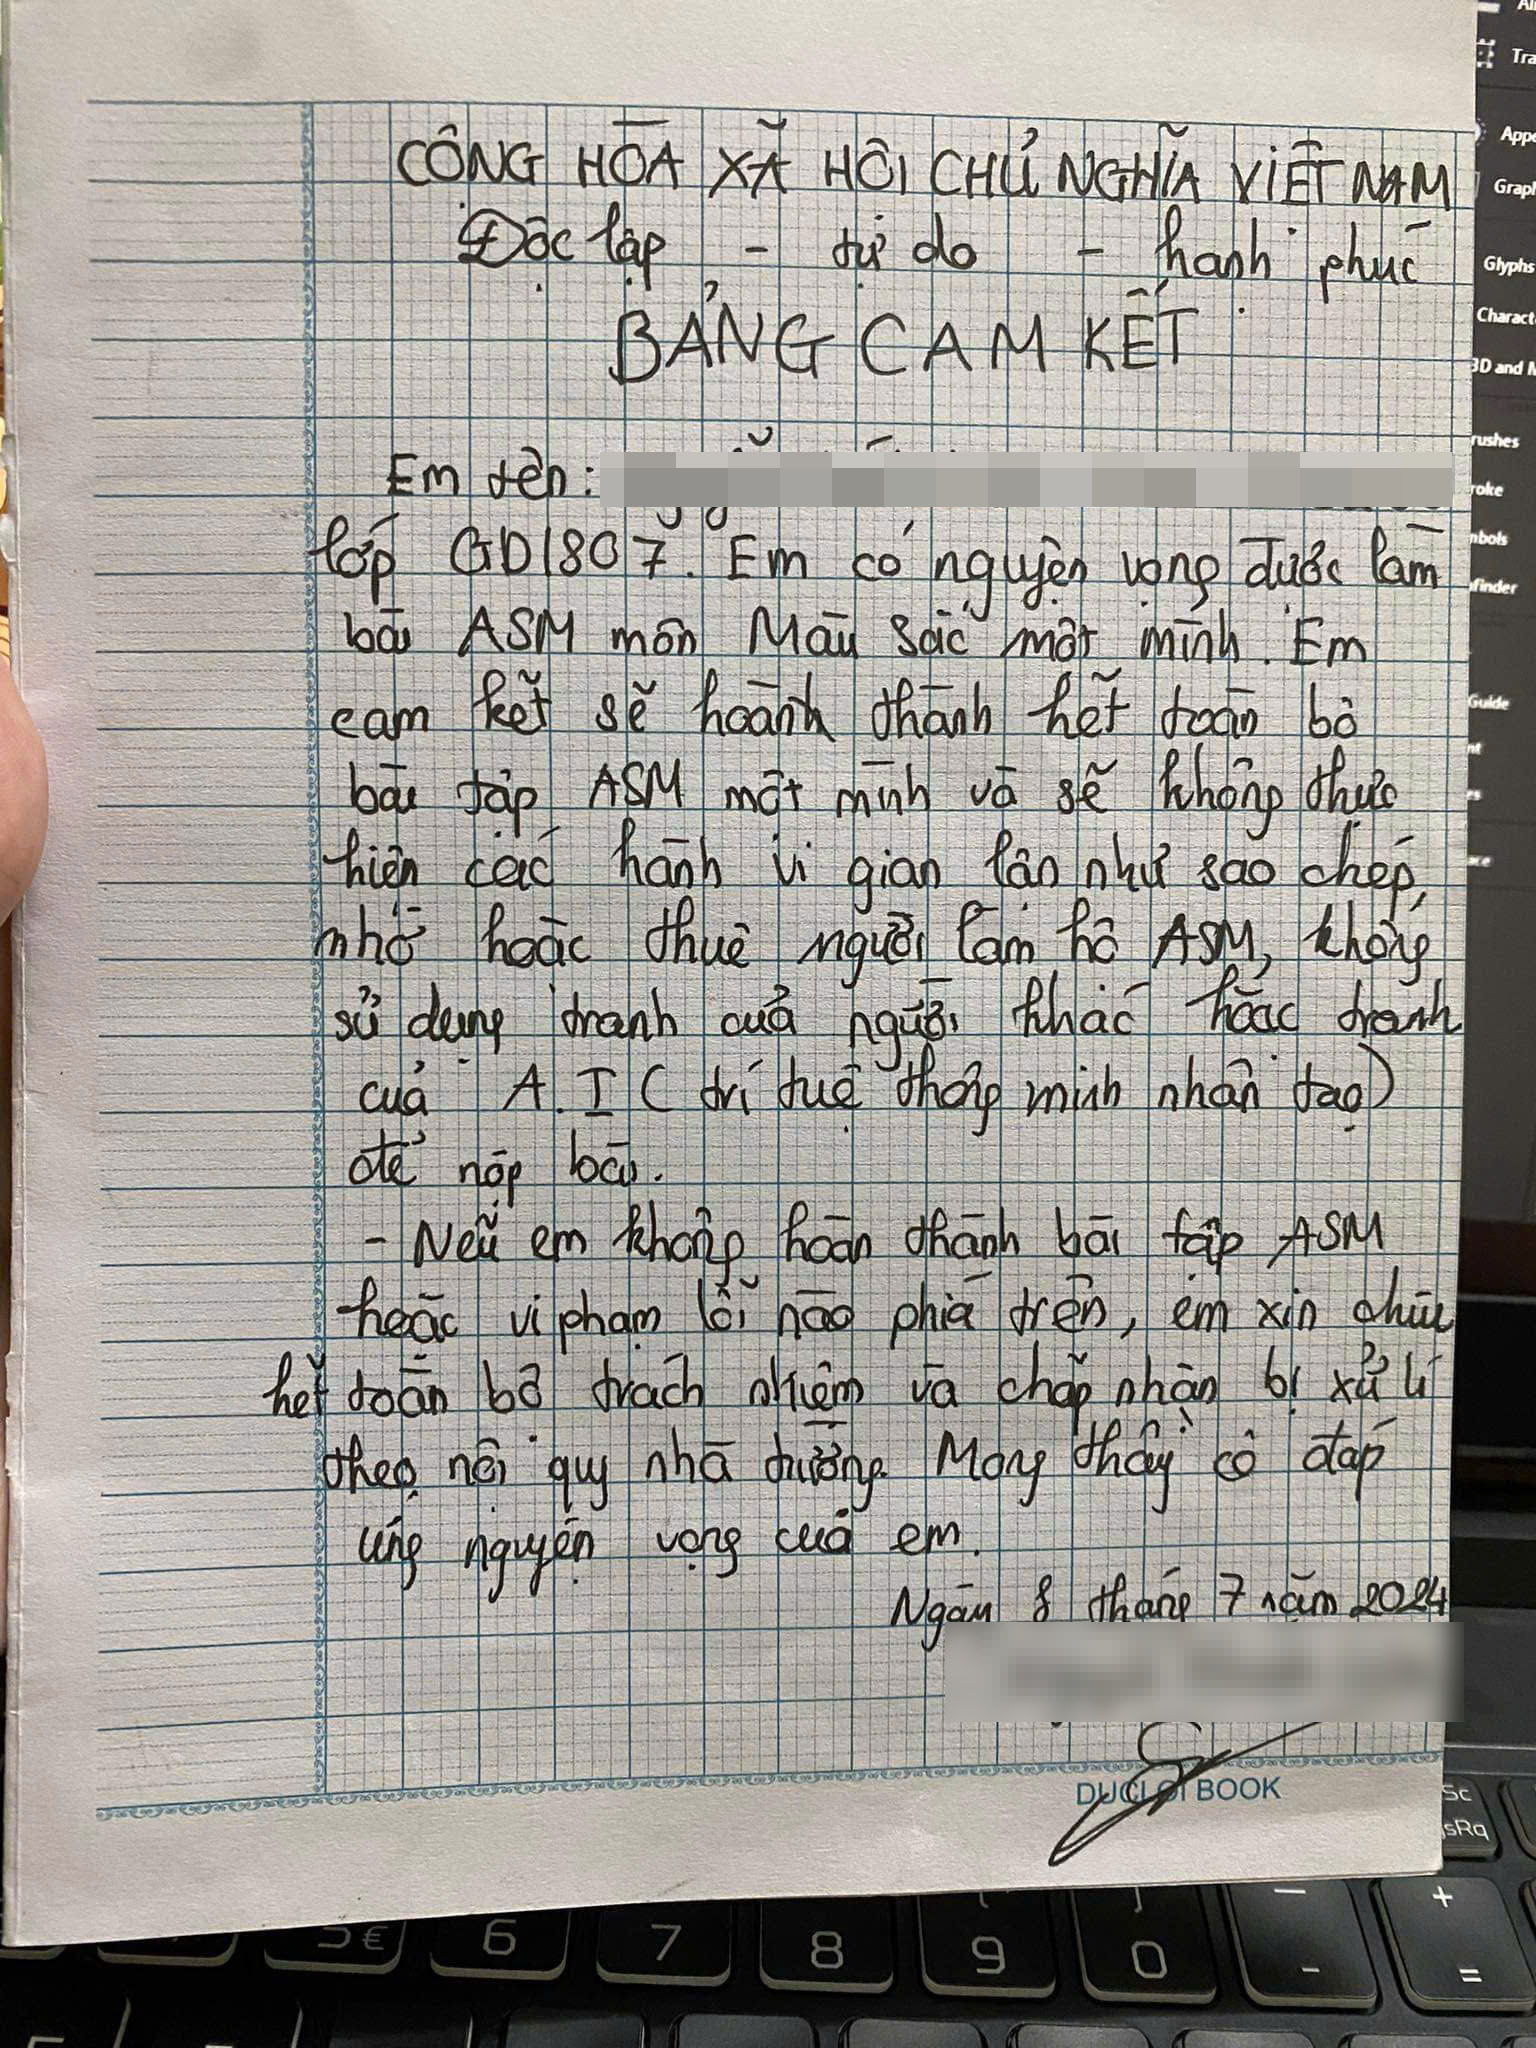 CỘNG HÒA XÃ HỘI CHỦ NGHĨA VIỆT NAM
Độc lập - tự do - hạnh phúc
BẢNG CAM KẾT
Em tên:
lớp GD1807. Em có nguyện vọng được làm
bài ASM môn Màu sắc một mình. Em
cam kết sẽ hoành thành hết toàn bộ
bài tập ASM một mình và sẽ không thực
hiện các hành vi gian lận như sao chép,
nhờ hoặc thuê người làm hộ ASM, không
sử dụng tranh của người khác hoặc tranh
của A.I (trí tuệ thông minh nhân tạo)
để nộp bài.
- Nếu em không hoàn thành bài tập ASM
hoặc vi phạm lỗi nào phía trên, em xin chịu
hết toàn bộ trách nhiệm và chấp nhận bị xử lí
theo nội quy nhà trường. Mong thầy cô đáp
ứng nguyện vọng của em.
Ngày 8 tháng 7 năm 2024
DUCLOI BOOK
Glyphs
Guide
5 €
6
7
8
9
0
-
+
=